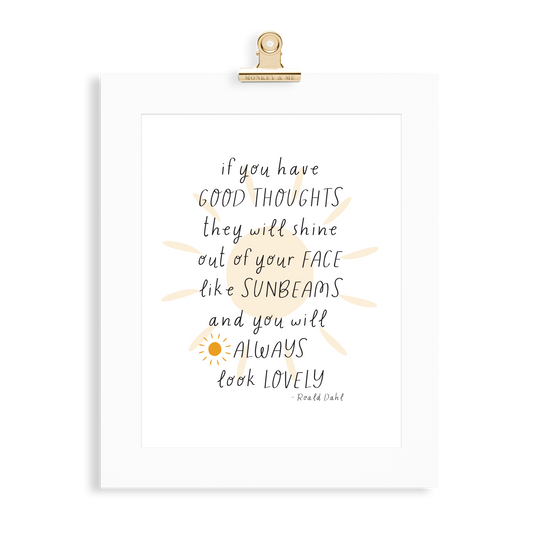 MONKEY & ME
if you have
GOOD THOUGHTS
they will shine
out of your FACE
like SUNBEAMS
and you will
ALWAYS
look LOVELY
- Roald Dahl